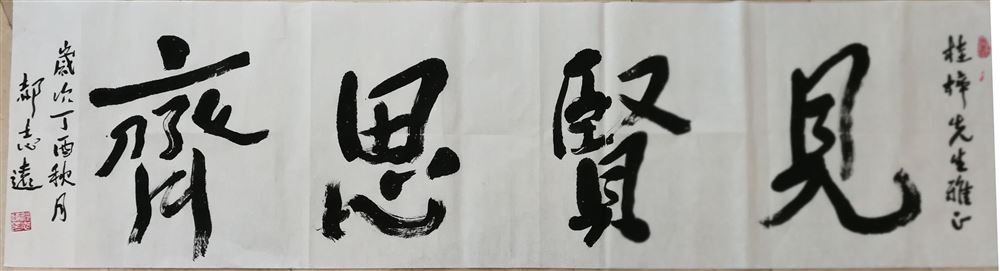 桂梓先生雅正
見賢思齊
歲次丁酉秋月
郝志遠